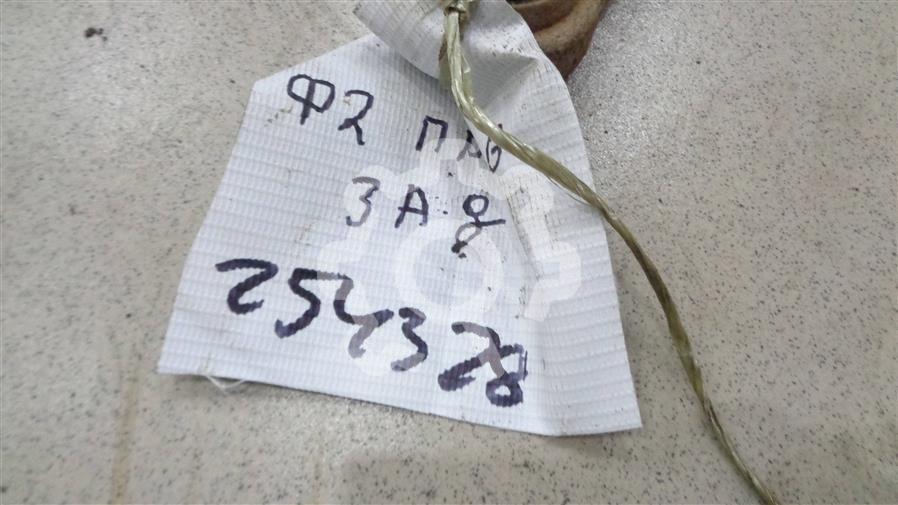 Ф2 ПАВ
ЗАД
254328